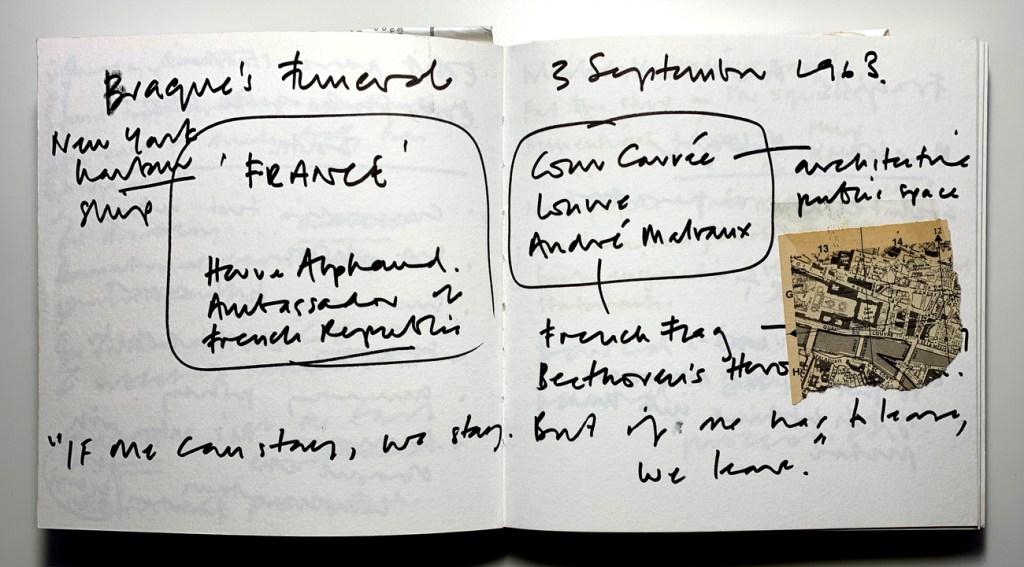 Braque's Funeral
New York
harbour
ship
'FRANCE'
Herve Alphand.
Ambassador of
French Republic
"If one can stay, we stay.
3 September 1963.
Cour Carrée
Louvre
André Malraux
architecture
public space
13 14
G
H
French Flag
Beethoven's
But if one has to leave,
we leave."